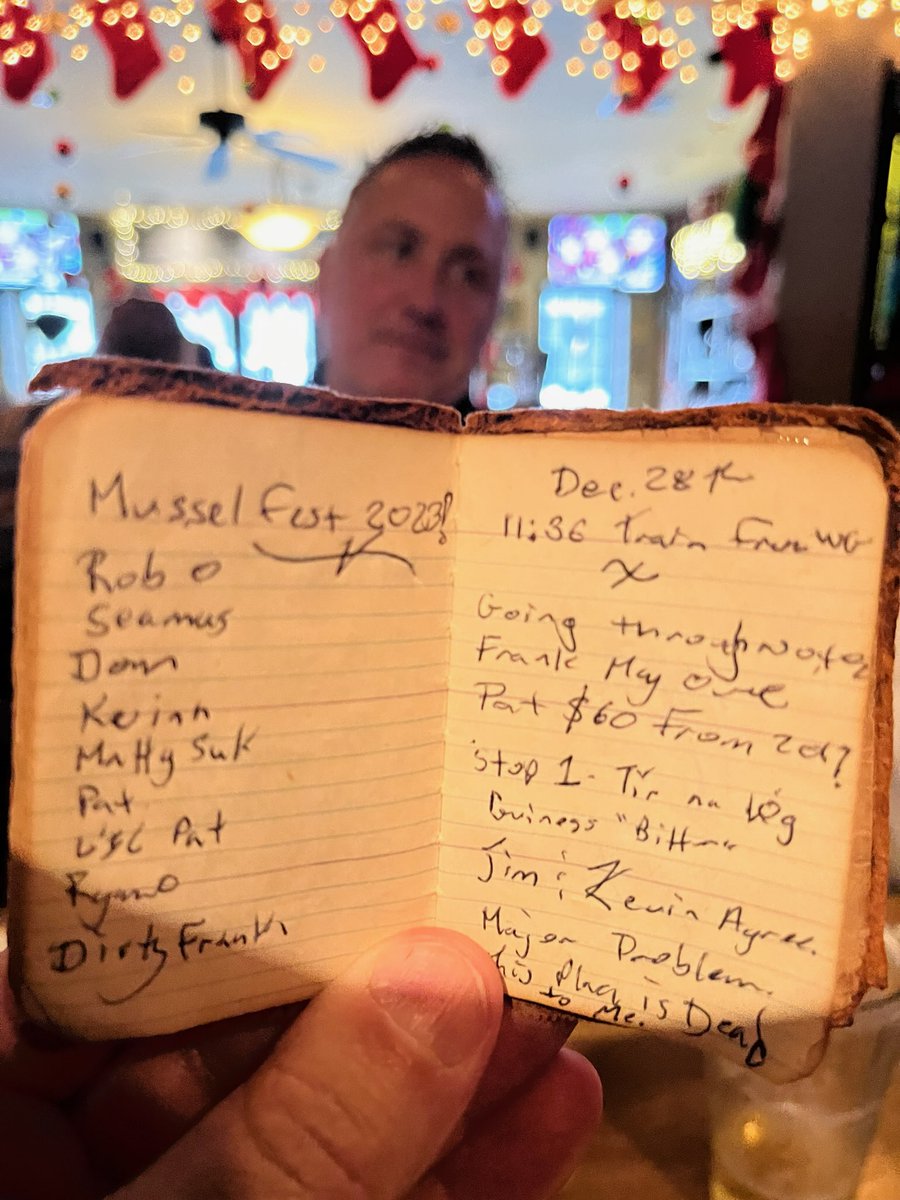 Mussel Fest 2023!
Rob O
Seamus
Domn
Kevinn
Matty Suk
Pat
Pat
RyanO
Dirty Frank
Dec. 28th
11:36 Train From WG
Going through notes
Frank May owe
Pat $60 From 2021?
Stop 1. Tír na Óg
Guiness "Bitter"
Jim & Kevin Agree.
Major Problem.
this place is Dead
to Me.